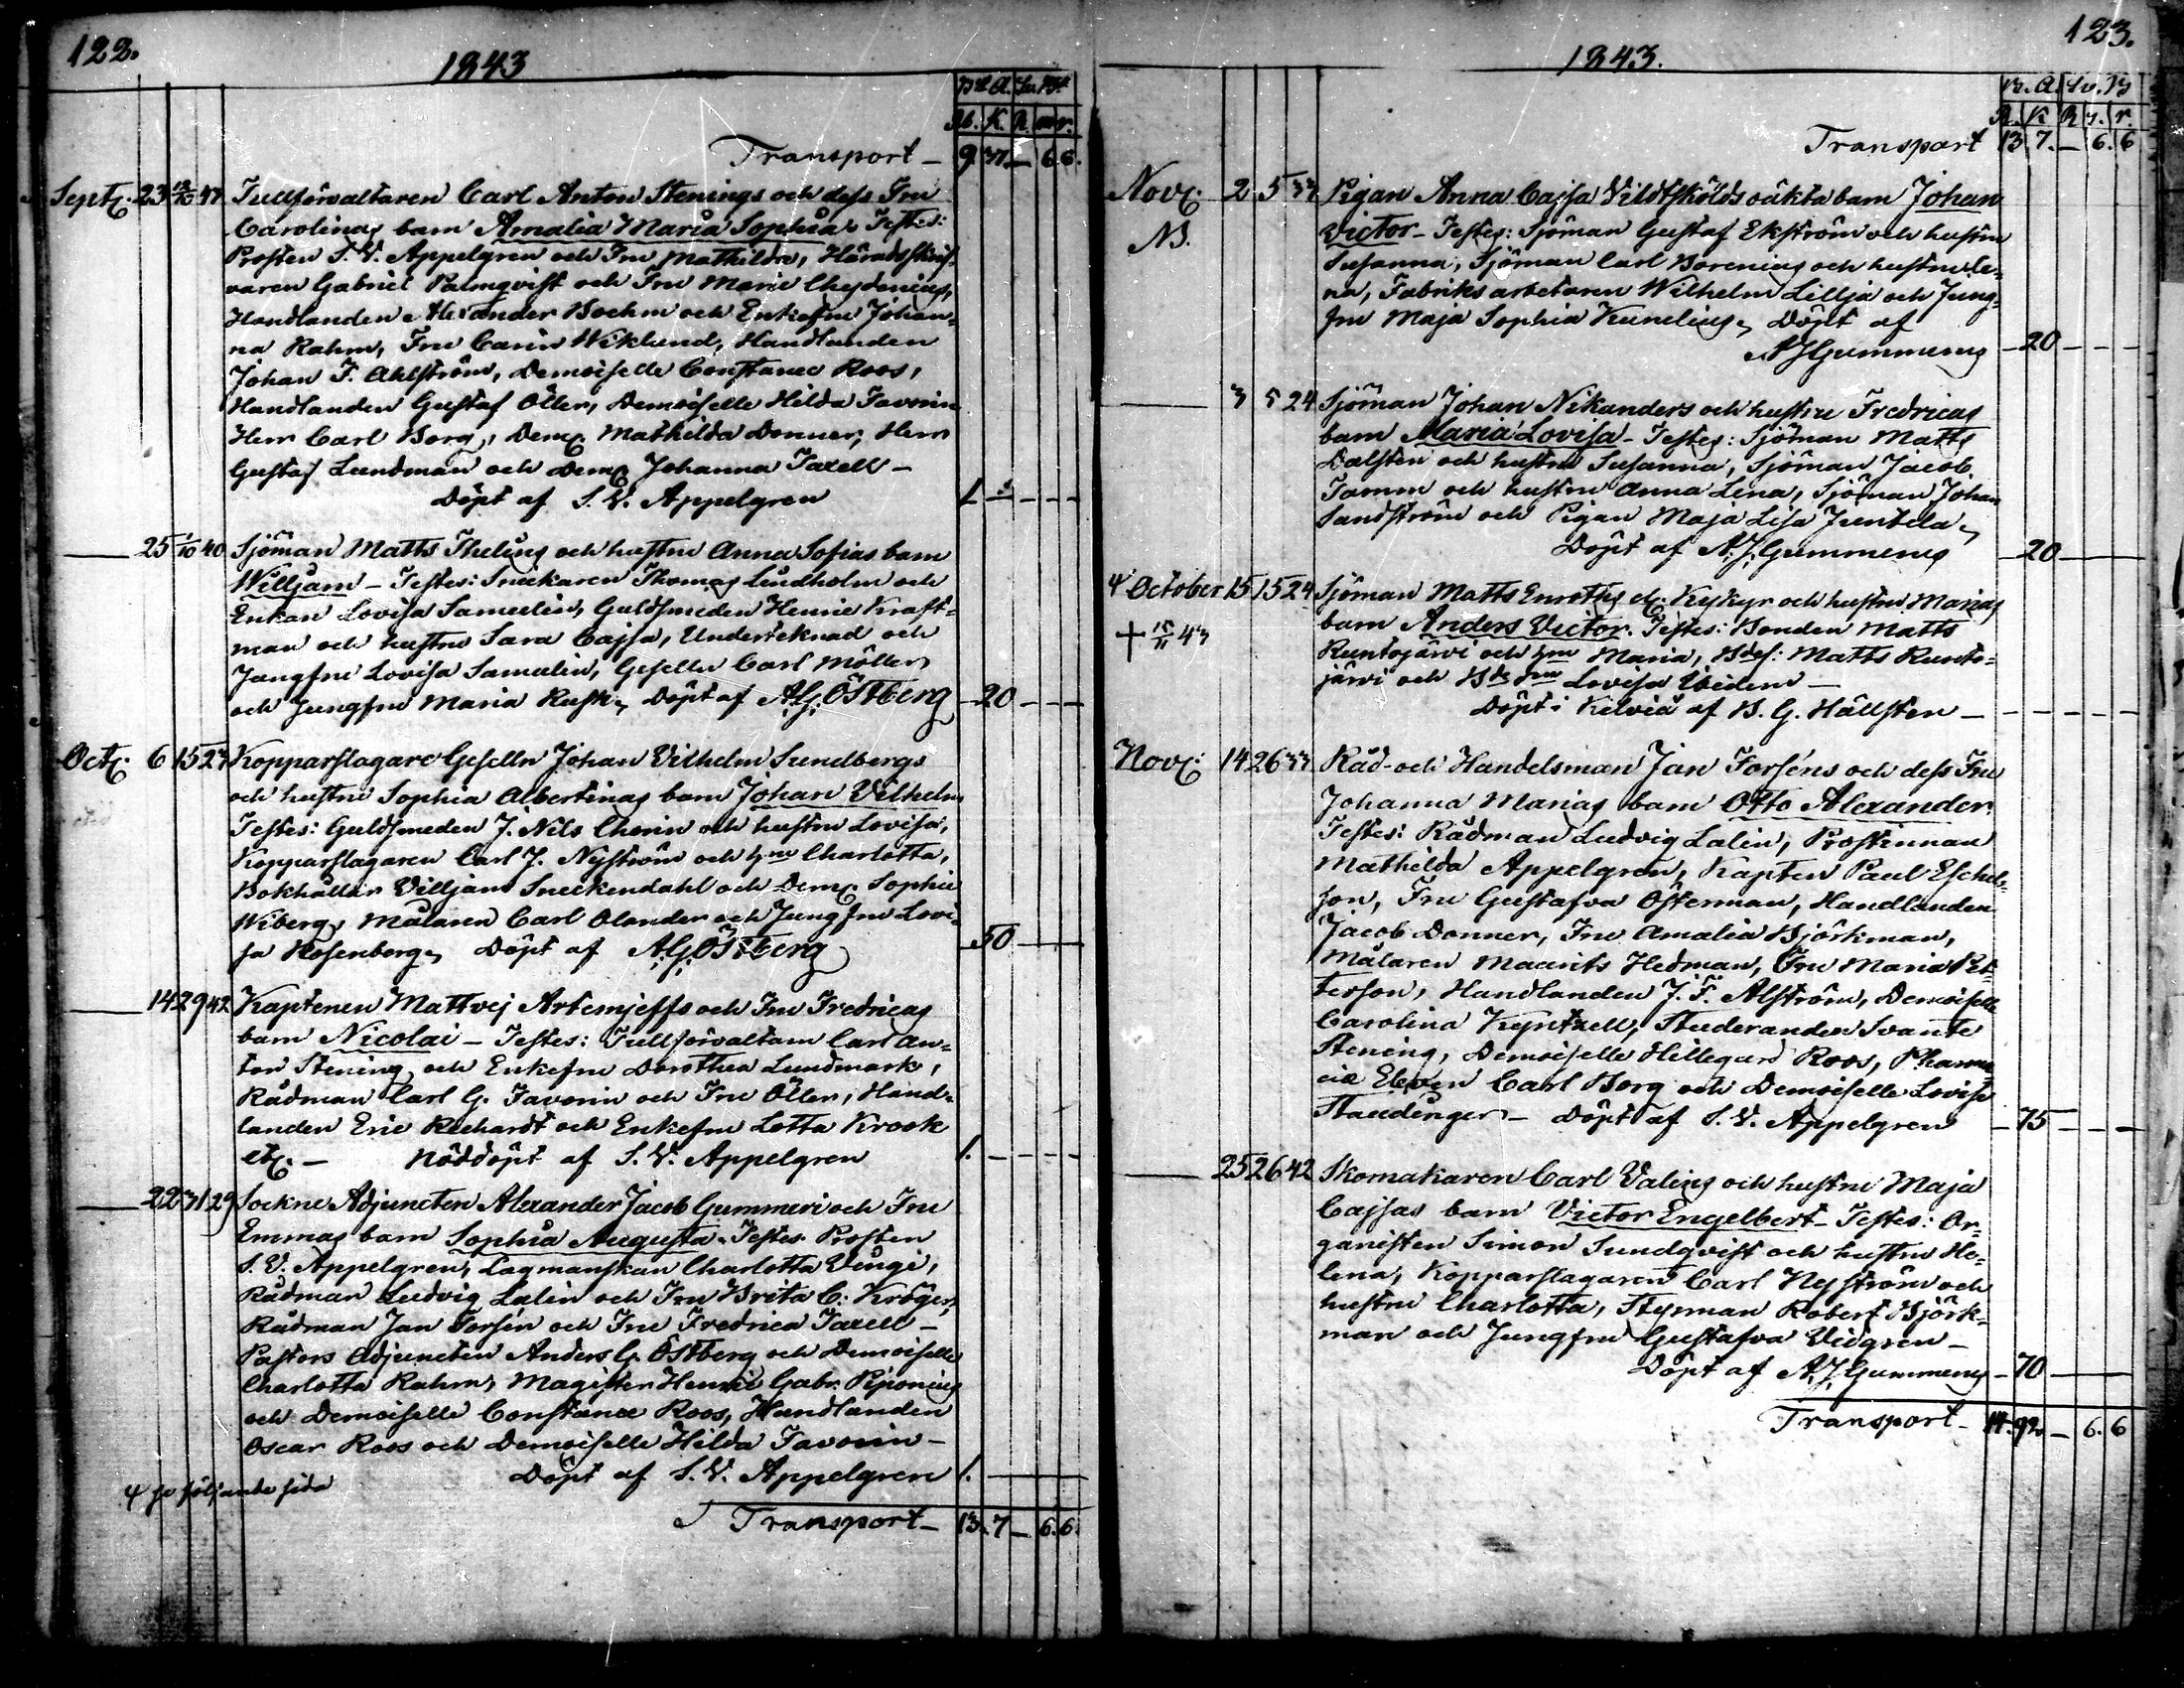 122.
1843
Bco A. Sv. Bco
Rb. K. R. s. r.
Transport – 9. 37. – 6. 6.
Septr. 23 12/10 37 Tullförvaltaren Carl Anton Stenings och dess Fru
Carolinas barn Amalia Maria Sophia. Testes:
Prosten S. V. Appelgren och Fru Mathilda, Häradsskrif-
varen Gabriel Palmqvist och Fru Maria Chydenius,
Handlanden Alexander Boehm och Enkefru Johan-
na Rahm, Fru Carin Wiklund, Handlanden
Johan F. Ahlström, Demoiselle Constance Roos,
Handlanden Gustaf Öller, Demoiselle Hilda Favorin
Herr Carl Borg, Demlle Mathilda Donner, Herr
Gustaf Lundman och Demlle Johanna Taxell –
Döpt af S. V. Appelgren 1. – – – –
— 25 1/10 40 Sjöman Matts Thelins och hustru Anna Sofias barn
Willjam – Testes: Snickaren Thomas Lindholm och
Enkan Lovisa Samelin, Guldsmeden Henric Kraft-
man och hustru Sara Cajsa, Underteknad och
Jungfru Lovisa Samalin, Gesellen Carl Möller
och Jungfru Maria Rusk, Döpt af A.G. Östberg – 20 – – –
Octr. 6 15 27 Kopparslagare Geselln Johan Vilhelm Sundbergs
och hustru Sophia Albertinas barn Johan Vilhelm
Testes: Guldsmeden J. Nils Chorin och hustru Lovisa,
Kopparslagaren Carl J. Nyström och hru Charlotta,
Bokhållar Villjam Sneckendahl och Demlle Sophie
Wiberg, Målaren Carl Olander och Jungfru Lovi-
sa Rosenberg, Döpt af A.G. Östberg 50
— 14 29 42 Kaptenen Mattvej Artemjeffs och Fru Fredricas
barn Nicolai – Testes: Tullförvaltarn Carl An-
ton Stening, och Enkefru Dorothea Lundmark,
Rådman Carl G. Favorin och Fru Öller, Hand-
landen Eric Reichardt och Enkefru Lotta Krook
etc. – Nöddöpt af S. V. Appelgren 1. – – – –
— 22 31 29 Sockne Adjuncten Alexander Jacob Gummeri och Fru
Emmas barn Sophia Augusta. Testes Prosten
S. V. Appelgren, Lagmanskan Charlotta Vingi,
Rådman Ludvig Lalin och Fru Brita C. Kröger,
Rådman Jan Forsén och Fru Fredrica Taxell –
Pastors Adjuncten Anders G. Östberg och Demoiselle
Charlotta Rahm, Magister Henric Gabr. Peponius
och Demoiselle Constance Roos, Handlanden
Oscar Roos och Demoiselle Hilda Favorin –
Döpt af S. V. Appelgren 1.
se följande sida
Transport – 13. 7 – 6. 6.
123.
1843.
B. A. Sv. B
R. K R s. r.
Transport 13 7. – 6. 6
Novr. 2 5 33 Pigan Anna Cajsa Vildtskölds oäkta barn Johan
NB. Victor – Testes: Sjöman Gustaf Ekström och hustru
Susanna, Sjöman Carl Borenius och hustru Le-
na, Fabriks arbetaren Wilhelm Lillja och Jung-
fru Maja Sophia Kunelius, Döpt af
A J Gummerus – 20 – – –
— 3 5 24 Sjöman Johan Nikanders och hustru Fredricas
barn Maria Lovisa – Testes: Sjöman Matts
Dalsten och hustru Susanna, Sjöman Jacob
Tamm och hustru Anna Lena, Sjöman Johan
Sandström och Pigan Maja Lisa Juntila,
Döpt af A. J. Gummerus – 20
October 15 15 24 Sjöman Matts Enroths el. Kykyr och hustru Marias
† 15/11 43 barn Anders Victor. Testes: Bonden Matts
Runtojärvi och hru Maria, Bdes: Matts Runto-
järvi och Bds Lovisa Widen –
Döpt i Kelviå af B. G. Hällsten – – – – –
Novr. 14 26 33 Råd- och Handelsman Jan Forséns och dess Fru
Johanna Marias barn Otto Alexander.
Testes: Rådman Ludvig Lalin, Prostinnan
Mathilda Appelgren, Kapten Paul Eschel-
son, Fru Gustafva Österman, Handlanden
Jacob Donner, Fru Amalia Björkman,
Målaren Maurits Hedman, Fru Maria Pet-
terson, Handlanden J. F. Alström, Demoiselle
Carolina Kyntzell, Studeranden Svante
Stening, Demoiselle Hillegard Roos, Pharma
cie Eleven Carl Borg och Demoiselle Lovise
Staudinger – Döpt af S. V. Appelgren – 75 – – –
— 25 26 42 Skomakaren Carl Valins och hustru Maja
Cajsas barn Victor Engelbert – Testes: Or-
ganisten Simon Sundqvist och hustru He-
lena, Kopparslagaren Carl Nyström och
hustru Charlotta, Styrman Robert Björk-
man och Jungfru Gustafva Vidgren –
Döpt af A. J. Gummerus – 70
Transport – 14. 92 – 6. 6